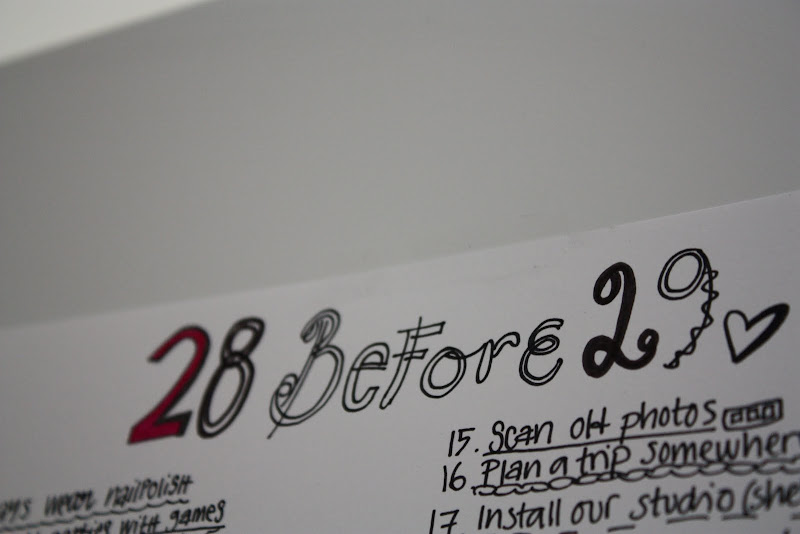 28 Before 29
wear nailpolish
with games
15. Scan old photos
16. Plan a trip
17. Install our studio (she